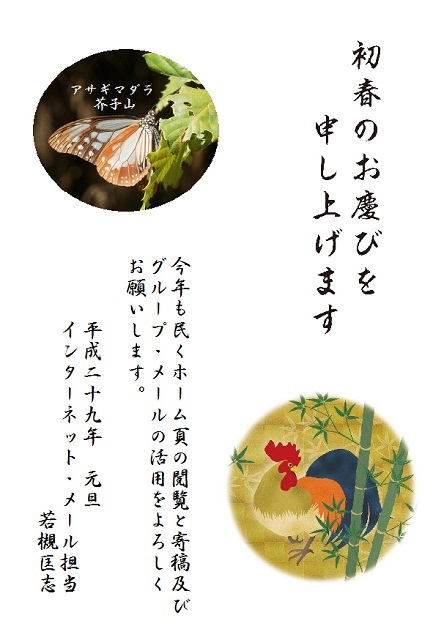 初春のお慶びを
申し上げます
アサギマダラ
芥子山
今年も民くホーム頁の閲覧と寄稿及び
グループ・メールの活用をよろしく
お願いします。
平成二十九年 元旦
インターネット・メール担当
若槻匡志